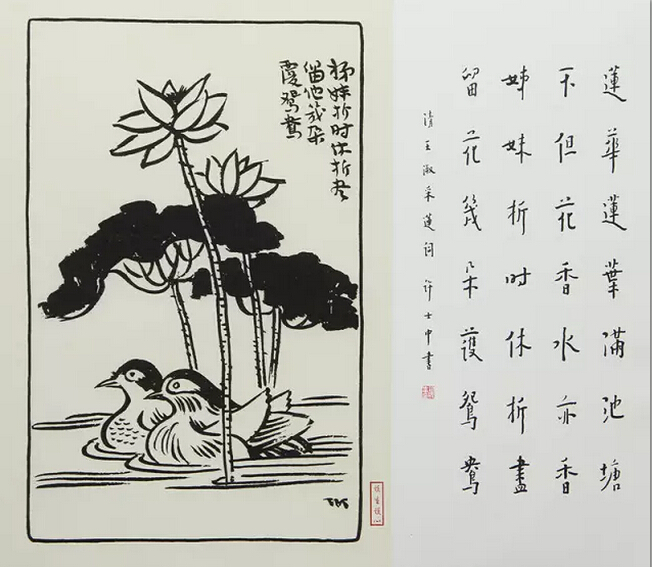 姊妹折时休折尽
留他幾朵
覆鴛鴦
蓮華蓮葉滿池塘
不但花香水亦香
姊妹折时休折盡
留花幾朵護鴛鴦
清王淑采蓮詞 許士中書